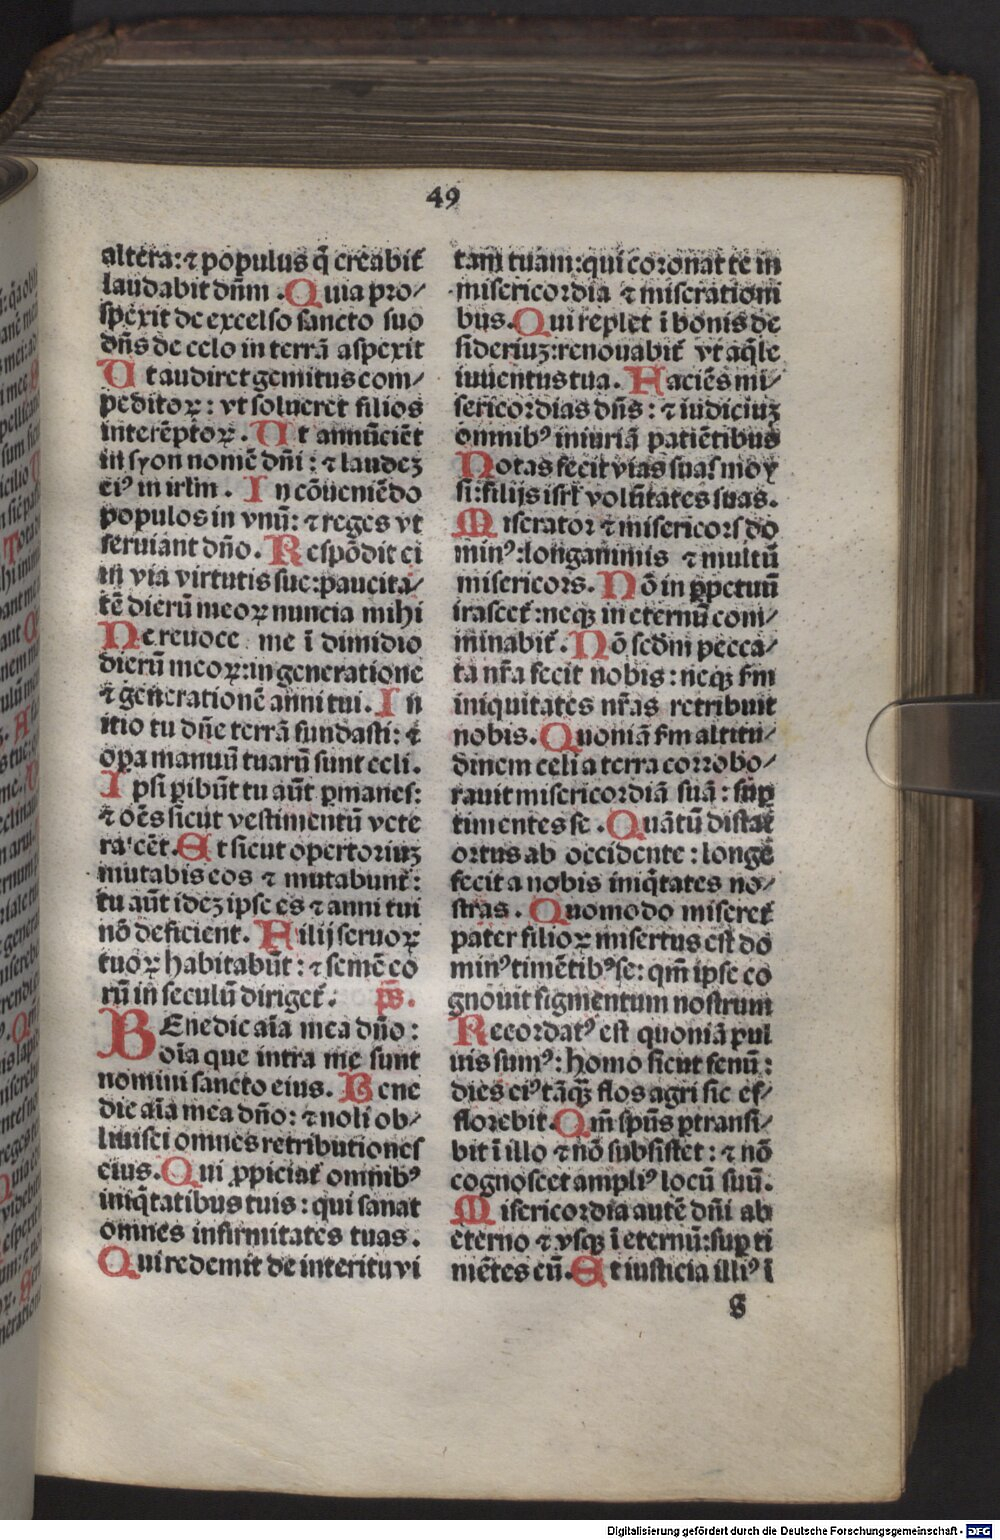 49
altera: ⁊ populus q̃ creabit᷑
laudabit dñm. Quia pro⸗
spexit de excelso sancto suo
dñs de celo in terrã aspexit
Ut audiret gemitus com⸗
peditoꝝ: vt solueret filios
interẽptoꝝ. Ut annũciẽt
in syon nomẽ dñi: ⁊ laudeȝ
eiꝰ in irlm̃. In cõueniẽdo
populos in vnũ: ⁊ reges vt
seruiant dño. Respõdit ei
in via virtutis sue: paucita⸗
tẽ dierũ meoꝝ nuncia mihi
Ne reuoce me ĩ dimidio
dierũ meoꝝ: in generatione
⁊ generationẽ anni tui. In
itio tu dñe terrã fundasti: ⁊
oꝑa manuũ tuarũ sunt celi.
Ipsi ꝑibũt tu aũt ꝑmanes:
⁊ oẽs sicut vestimentũ vete
rascẽt. Et sicut opertoriuȝ
mutabis eos ⁊ mutabunt᷑:
tu aũt ideȝ ipse es ⁊ anni tui
nõ deficient. Filij seruoꝝ
tuoꝝ habitabũt: ⁊ semẽ eo
rũ in seculũ diriget᷑. p̃s.
BEnedic aĩa mea dño:
oĩa que intra me sunt
nomini sancto eius. Bene
dic aĩa mea dño: ⁊ noli ob⸗
liuisci omnes retributiones
eius. Qui ꝓpiciat᷑ omnibꝰ
iniq̃tatibus tuis: qui sanat
omnes infirmitates tuas.
Qui redemit de interitu vi
tam tuam: qui coronat te in
misericordia ⁊ miserationi
bus. Qui replet ĩ bonis de
sideriuȝ: renouabit᷑ vt aq̃le
iuuentus tua. Faciẽs mi⸗
sericordias dñs: ⁊ iudiciuȝ
omnibꝰ iniuriã patiẽtibus
Notas fecit vias suas moy
si: filijs isrl᷑ volũtates suas.
Miserator ⁊ misericors do
minꝰ: longanimis ⁊ multũ
misericors. Nõ in ꝑpetuũ
irascet᷑: neqȝ in eternũ com⸗
minabit᷑. Nõ scdm̃ pecca⸗
ta nr̃a fecit nobis: neqȝ fm̃
iniquitates nr̃as retribuit
nobis. Quoniã fm̃ altitu⸗
dinem celi a terra corrobo⸗
rauit misericordiã suã: suꝑ
timentes se. Quãtũ distat
ortus ab occidente: longe
fecit a nobis iniq̃tates no⸗
stras. Quomodo miseret᷑
pater filioꝝ misertus est do
minꝰ timẽtibꝰ se: qm̃ ipse co
gnouit figmentum nostrum
Recordatꝰ est quoniã pul
uis sumꝰ: homo sicut fenũ:
dies eiꝰ tãqȝ flos agri sic ef⸗
florebit. Qm̃ spũs ptransi⸗
bit ĩ illo ⁊ nõ subsistet: ⁊ nõ
cognoscet ampliꝰ locũ suũ.
Misericordia autẽ dñi ab
eterno ⁊ vsqȝ ĩ eternũ: suꝑ ti
mẽtes eũ. Et iusticia illiꝰ ĩ
Digitalisierung gefördert durch die Deutsche Forschungsgemeinschaft - DFG